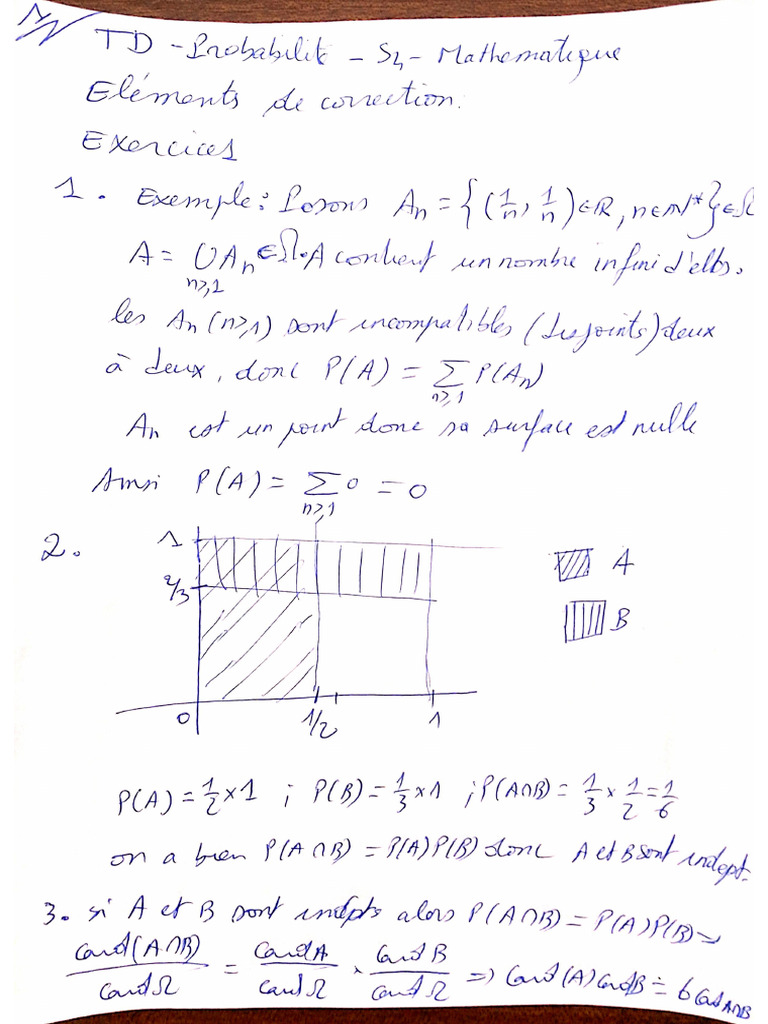 TD - Probabilité - S4 - Mathematique
Eléments de correction.
Exercices
1. Exemple : Posons An = {(1/n, 1/n) ∈ R, n ∈ N*} ∈ Ω
A = ∪ An ∈ Ω. A contient un nombre infini d'elts.
n≥1
les An (n≥1) sont incompatibles (disjoints) deux
à deux, donc P(A) = Σ P(An)
n≥1
An est un point donc sa surface est nulle
Ainsi P(A) = Σ 0 = 0
n≥1
2.
1
A
2/3
B
0 1/2 1
P(A) = 1/2 × 1 ; P(B) = 1/3 × 1 ; P(A∩B) = 1/3 × 1/2 = 1/6
on a bien P(A∩B) = P(A)P(B) donc A et B sont indept.
3. si A et B sont indepts alors P(A∩B) = P(A)P(B)
card(A∩B)/cardΩ = CardA/cardΩ × CardB/cardΩ => Card(A)CardB = 6Card A∩B